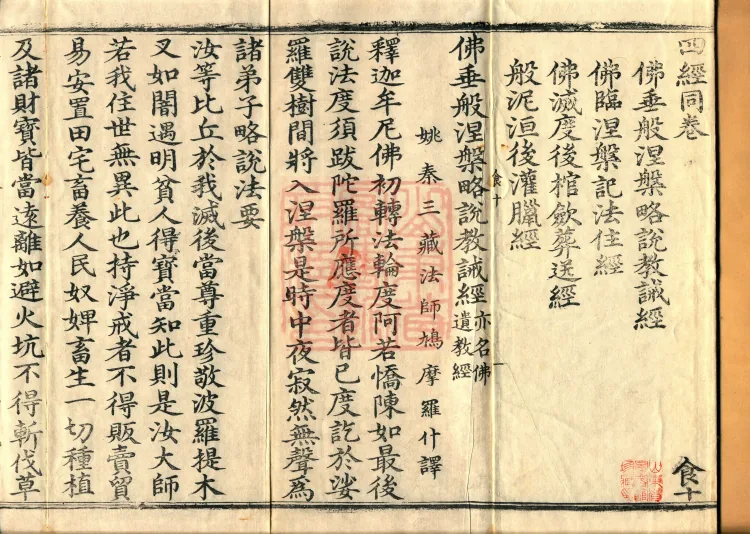 四經同卷 食十
佛垂般涅槃略說教誡經
佛臨涅槃記法住經
佛滅度後棺斂葬送經
般泥洹後灌臘經
食十 一
佛垂般涅槃略說教誡經 亦名佛遺教經
姚秦三藏法師鳩摩羅什譯
釋迦牟尼佛初轉法輪度阿若憍陳如最後
說法度須跋陀羅所應度者皆已度訖於娑
羅雙樹間將入涅槃是時中夜寂然無聲爲
諸弟子略說法要
汝等比丘於我滅後當尊重珍敬波羅提木
叉如闇遇明貧人得寶當知此則是汝大師
若我住世無異此也持淨戒者不得販賣貿
易安置田宅畜養人民奴婢畜生一切種植
及諸財寶皆當遠離如避火坑不得斬伐草